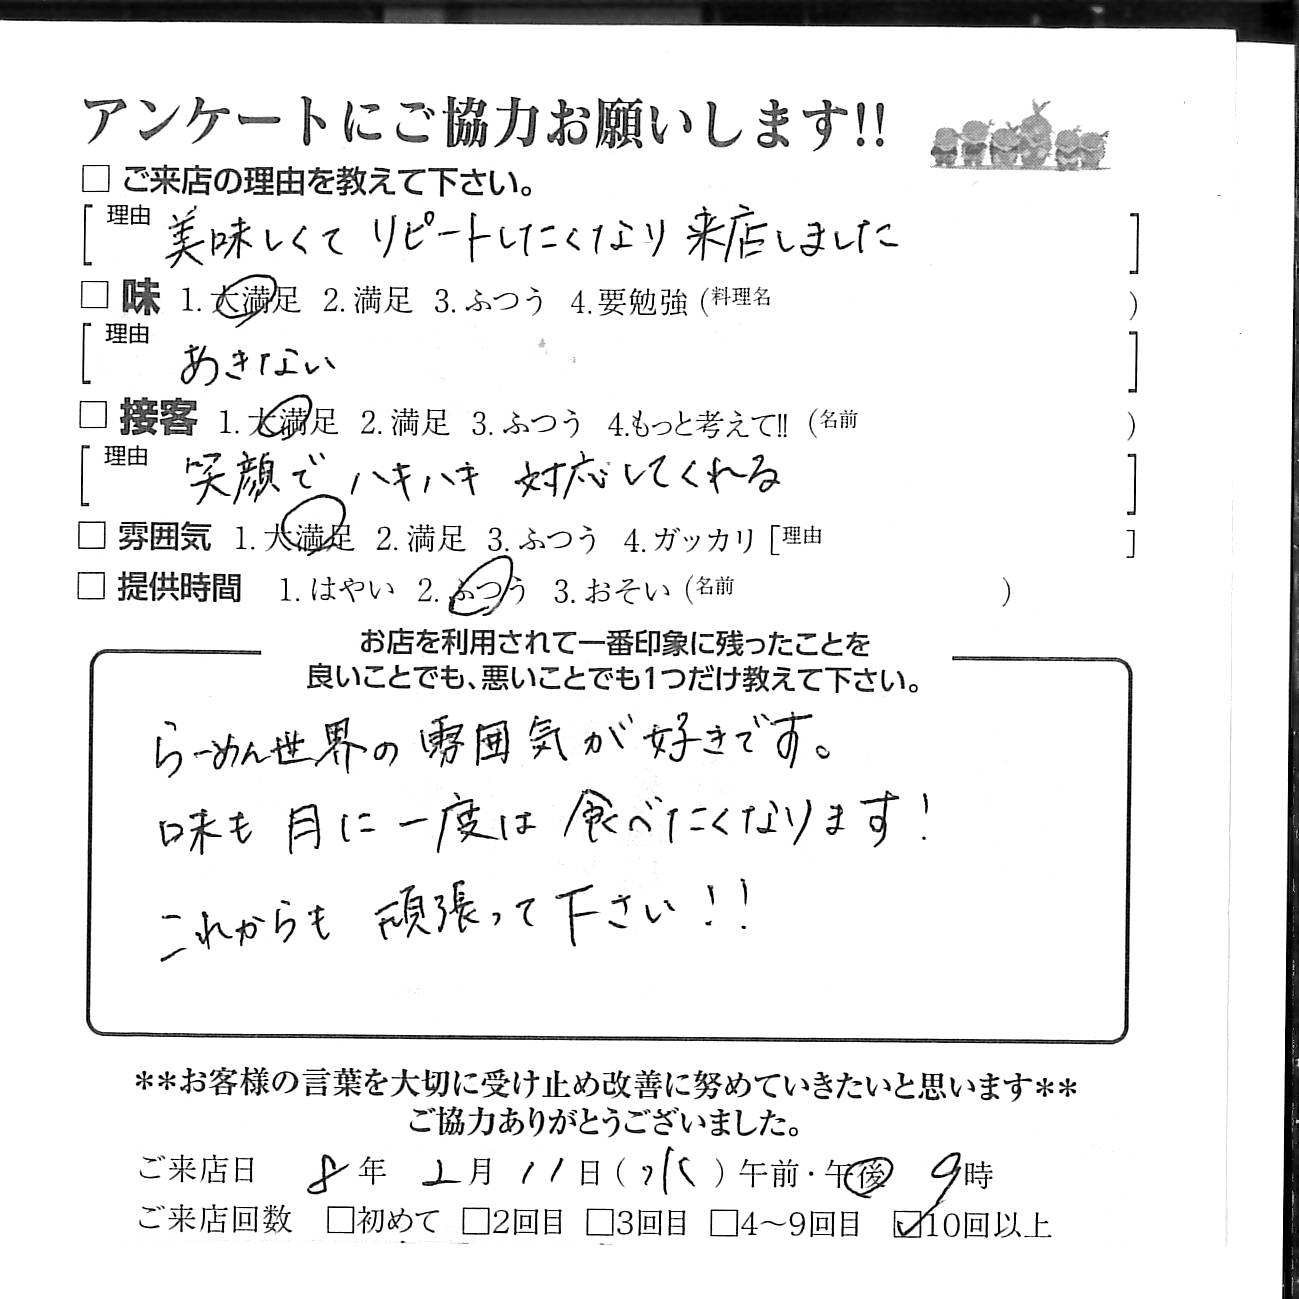 アンケートにご協力お願いします!!
□ ご来店の理由を教えて下さい。
[理由 美味しくて リピートしたくなり 来店しました ]
□ 味 1.大満足 2.満足 3.ふつう 4.要勉強(料理名 )
[理由 あきない ]
□ 接客 1.大満足 2.満足 3.ふつう 4.もっと考えて!!(名前 )
[理由 笑顔で ハキハキ 対応してくれる ]
□ 雰囲気 1.大満足 2.満足 3.ふつう 4.ガッカリ[理由 ]
□ 提供時間 1.はやい 2.ふつう 3.おそい(名前 )
お店を利用されて一番印象に残ったことを
良いことでも、悪いことでも1つだけ教えて下さい。
らーめん世界の 雰囲気が 好きです。
味も 月に 一度は 食べたくなります!
これからも 頑張って下さい!!
**お客様の言葉を大切に受け止め改善に努めていきたいと思います**
ご協力ありがとうございました。
ご来店日 8年 2月 11日(水)午前・午後 9時
ご来店回数 □初めて □2回目 □3回目 □4〜9回目 ☑10回以上